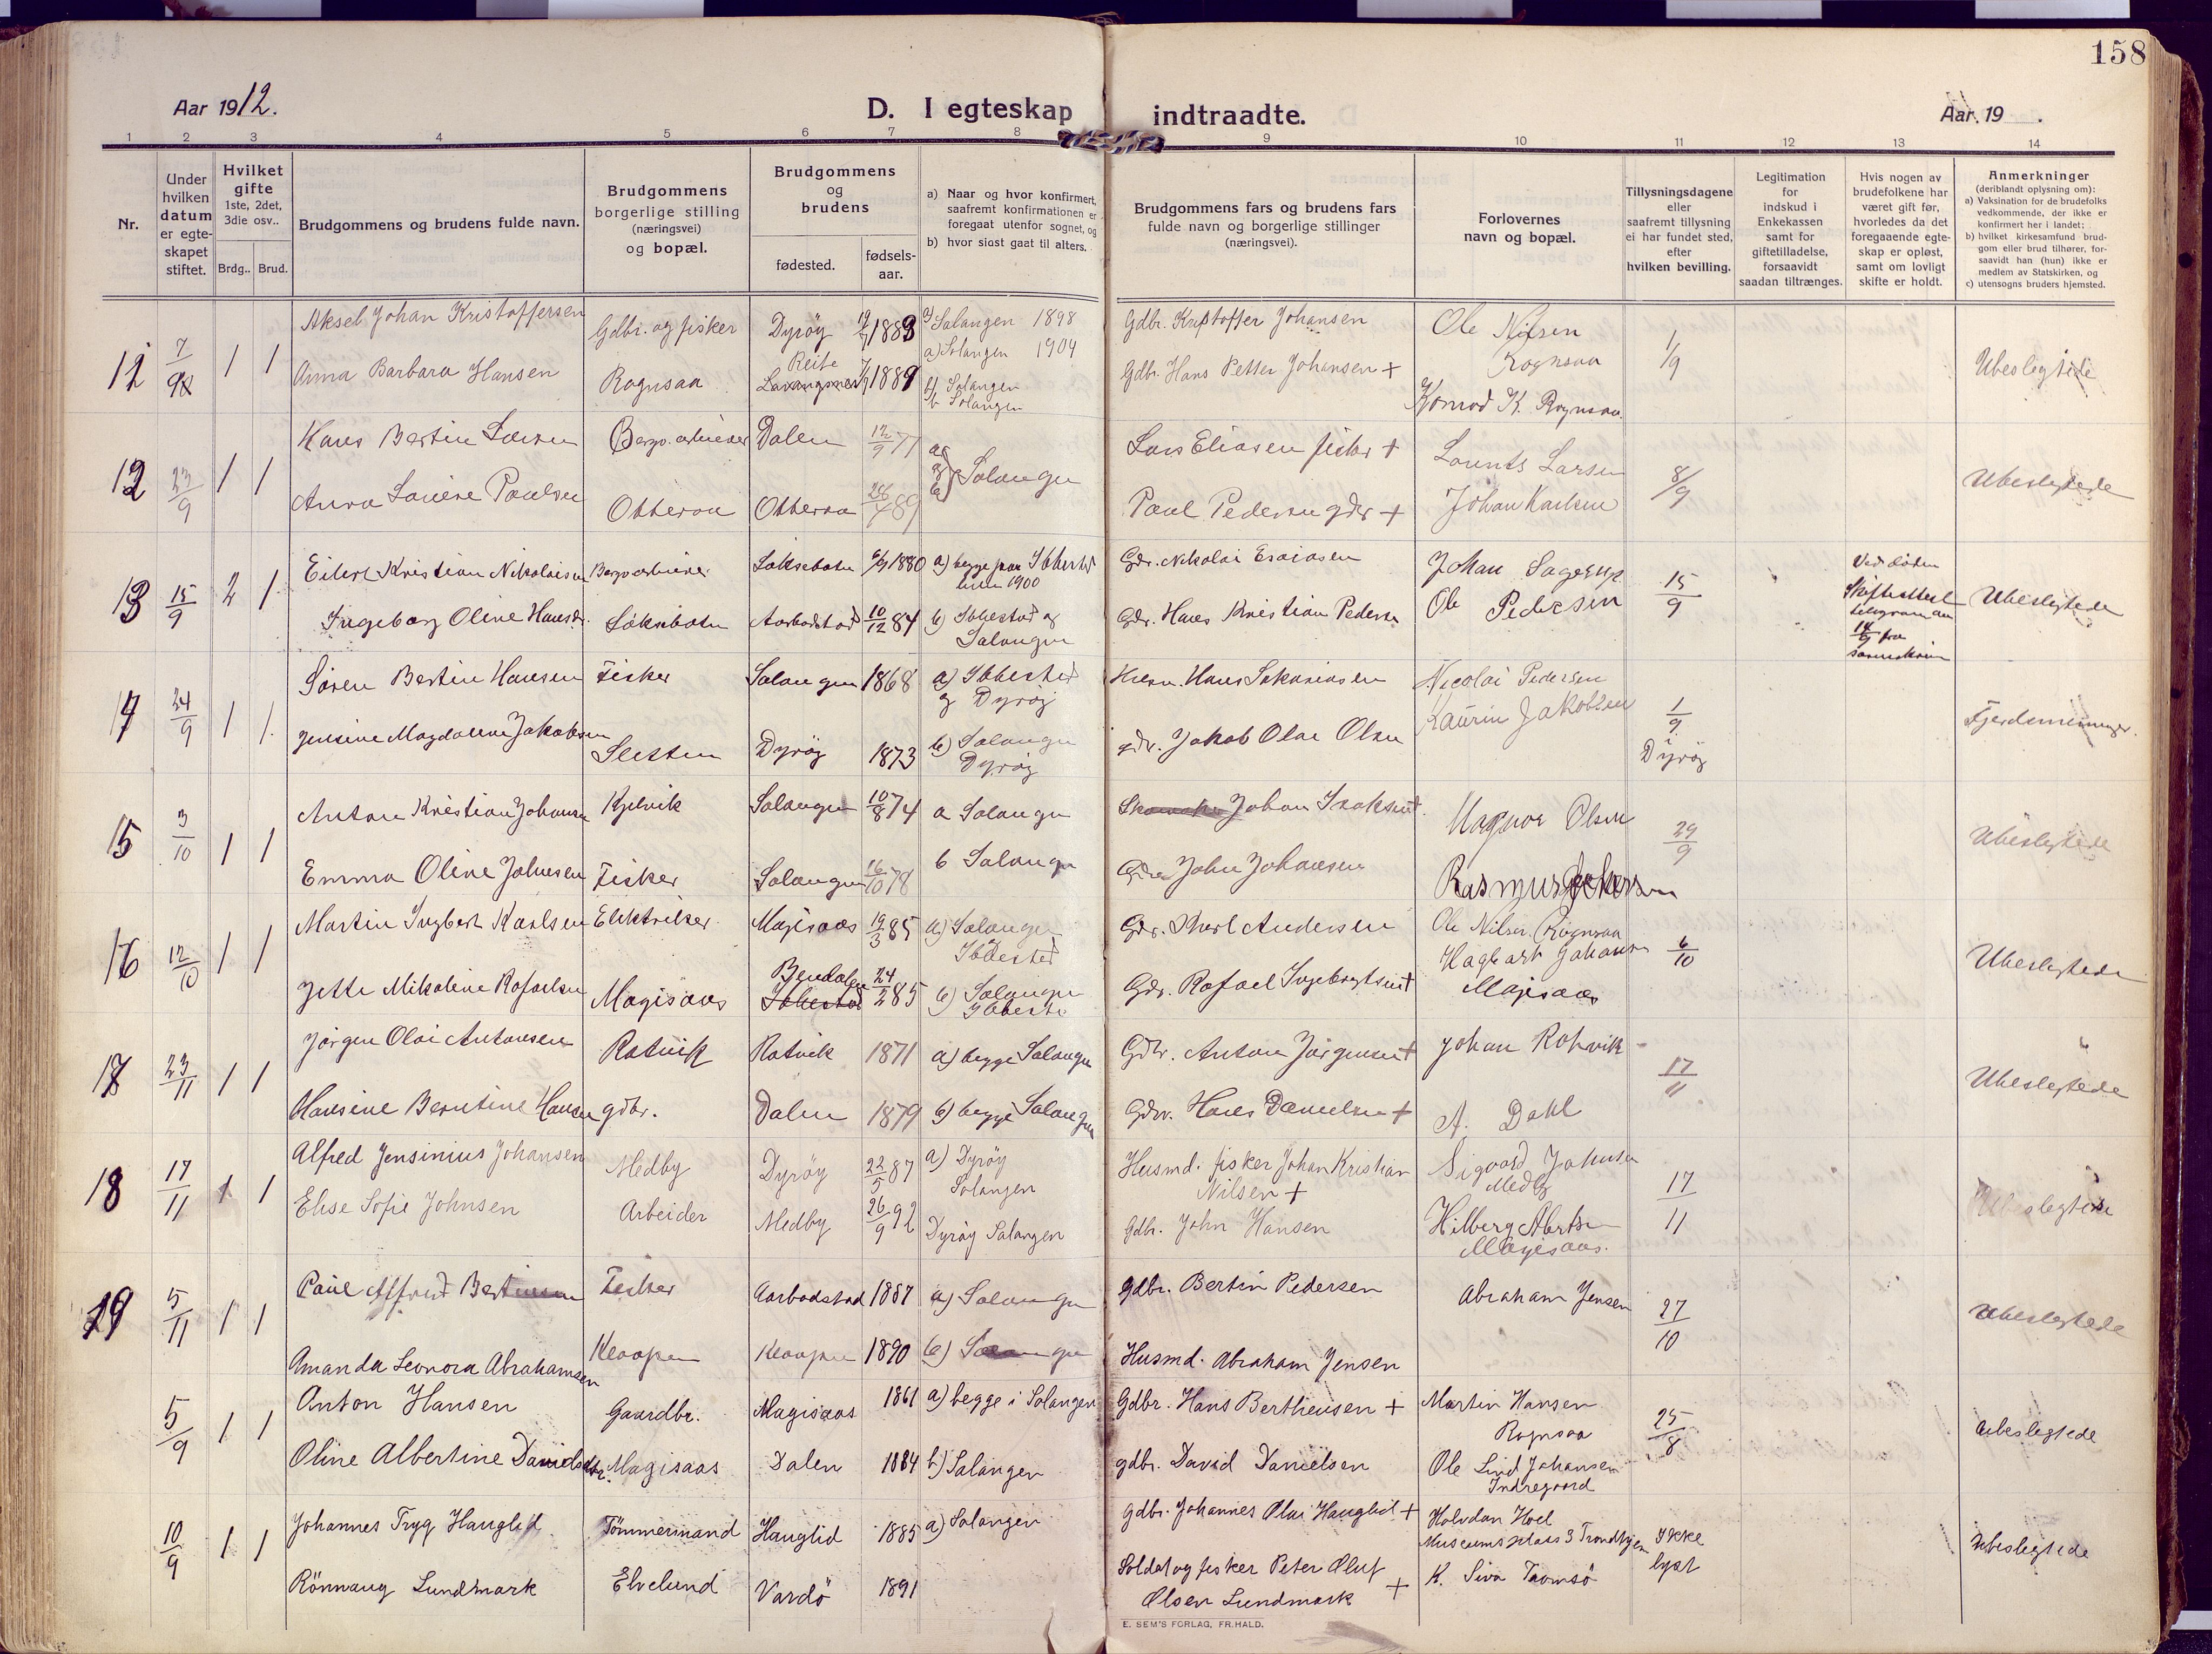 158
Aar 1912.
D. I egteskap indtraadte.
Aar 19 .
1 2 3 4 5 6 7 8 9 10 11 12 13 14
Nr.
Under hvilken datum er egteskapet stiftet.
Hvilket gifte 1ste, 2det, 3die osv..
Brdg.. Brud.
Brudgommens og brudens fulde navn.
Brudgommens borgerlige stilling (næringsvei) og bopæl.
Brudgommens og brudens
fødested.
fødsels-aar.
a) Naar og hvor konfirmert, saafremt konfirmationen er foregaat utenfor sognet, og
b) hvor sidst gaat til alters.
Brudgommens fars og brudens fars fulde navn og borgerlige stillinger (næringsvei).
Forlovernes navn og bopæl.
Tillysningsdagene eller saafremt tillysning ei har fundet sted, efter hvilken bevilling.
Legitimation for indskud i Enkekassen samt for giftetilladelse, forsaavidt saadan tiltrænges.
Hvis nogen av brudefolkene har været gift før, hvorledes da det foregaaende egteskap er opløst, samt om lovligt skifte er holdt.
Anmerkninger (deriblandt oplysning om):
a) Vaksination for de brudefolks vedkommende, der ikke er konfirmert her i landet;
b) hvilket kirkesamfund brudgom eller brud tilhører, forsaavidt han (hun) ikke er medlem av Statskirken, og
c) utensogns bruders hjemsted.
Aksel Johan Kristoffersen Gdbr. og fisker Dyrøy 1883 Salangen 1898 Gdbr. Kristoffer Johansen Ole Nilsen
7/9 1 1 a) Salangen 1904 Rognsaa 1/9 Ubeslegtede
Anna Barbara Hansen Rognsaa Reite 1889 b) Salangen Gdbr. Hans Petter Johansen + Konrad K. Rognsaa.
b Salangen
Hans Bertin Larsen Bergv. arbeider Dalen 12/9 71 Lars Eliasen fisker + Lorents Larsen
12 23/9 1 1 Salangen 8/9 Ubeslegtede
Anna Laurine Paulsen Otteraa Otteraa 89 Paul Pedersen gdbr + Johan Karlsen
Eilert Kristian Nikolaisen Bergv arbeider Løksebotn 1880 a) begge paa Ibbestad Gdr. Nikolai Esaiasen Johan Sagerup Ved døden
13 15/9 2 1 1900 15/9 Skifteattest Ubeslegtede
Ingeborg Oline Hansdr. Løksebotn Aarbodstad 10/12 84 b) Ibbestad og Salangen Gdr. Hans Kristian Pedersen Ole Pedersen telegram
14/9 fra
Søren Bertin Hansen Fisker Salangen 1868 a) Ibbestad Hans Sakariasen Nicolai Pedersen
14 24/9 1 1 og Dyrøy Laurin Jakobsen 1/9
Jensine Magdalene Jakobsen Sletten Dyrøy 1873 b) Salangen gdr. Jakob Olai Olsen Dyrøy
Dyrøy
Anton Kristian Johansen Kjelvik Salangen 10/8 74 a Salangen Johan Isaksen + Magnor Olsen
15 3/10 1 1 29/9 Ubeslegtede
Emma Oline Johnsen Fisker Salangen 16/10 78 b Salangen John Johansen Rasmus
Martin Ingbert Karlsen Elektriker Magisaas 19/3 85 a) Salangen Gdr. Andersen Ole Nilsen Rognsaa
16 12/10 1 1 Ibbestad Hagbart Johansen 6/10 Ubeslegtede
Jette Mikaline Rafaelsen Magisaas Ibbestad 24/2 85 b) Salangen Gdr. Rafael Ingebrigtsen + Magisaas
Ibbestad
Jørgen Olai Antonsen Rotvik Rotvik 1871 a) begge Salangen Gdbr. Anton Jørgensen + Johan Rotvik
17 23/11 1 1 17/11 Ubeslegtede
Hansine Berntine Hansen gdbr. Dalen 1879 b) begge Salangen Gdbr. Hans Danielsen + A. Dahl
Alfred Jensinius Johansen Medby Dyrøy 22/5 87 a) Dyrøy Husmd. fisker Johan Kristian Sigvard Johnsen
18 17/11 1 1 Salangen Nilsen + Medby 17/11 Ubeslegtede
Elise Sofie Johnsen Arbeider Medby 26/9 92 Dyrøy Salangen Gdbr. John Hansen Hilberg
Magisaas.
Paul Alfred Bertinsen Fisker Aarbodstad 1887 a) Salangen gdbr. Bertin Pedersen Abraham Jensen
19 5/11 1 1 27/10 Ubeslegtede
Amanda Leonora Abrahamsen 1890 b) Salangen Husmd. Abraham Jensen
Anton Hansen Gaardbr. Magisaas 1861 a) begge i Salangen Gdbr. Hans Bertheusen + Martin Hansen
5/9 1 1 Rognsaa 25/8 Ubeslegtede
Oline Albertine Davidsdtr. Magisaas Dalen 1884 b) Salangen gdbr. David Danielsen Ole Lind Johansen
Indregaard
Johannes Tryg Hauglid Tømmermand Hauglid 1885 a) Salangen Gdbr. Johannes Olai Hauglid + Halvdan Hoel
10/9 1 1 Museumsplass 3 Trondhjem Ikke Ubeslegtede
Rönnaug Lundmark Elvelund Vardö 1891 Soldat og fisker Peter Oluf K. Siva Tromsö lyst
Olsen Lundmark +
E. SEM'S FORLAG, FR.HALD.